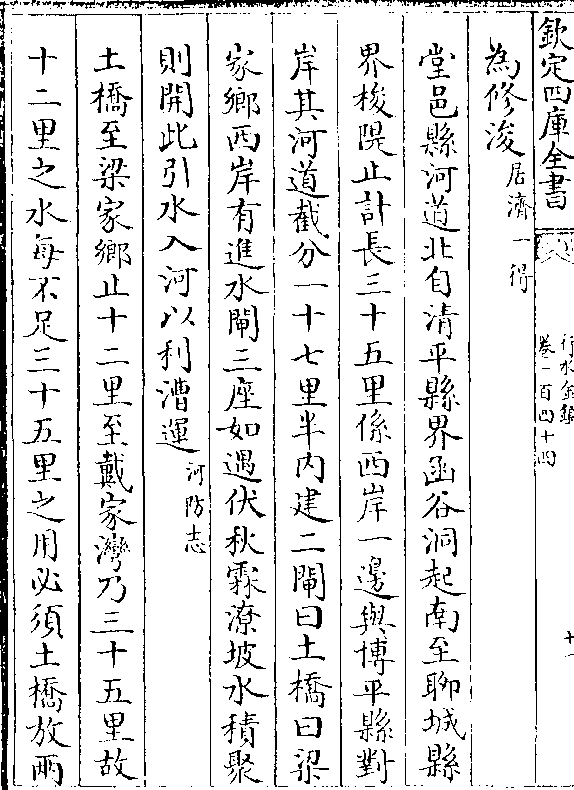 欽定四庫全書
行水金鑑
卷一百四十四
十一
為修浚居濟一得
堂邑縣河道北自清平縣界函谷洞起南至聊城縣
界梭隄止計長三十五里係西岸一邊與博平縣對
岸其河道截分一十七里半内建二閘曰土橋曰梁
家鄉西岸有進水閘三座如遇伏秋霖潦坡水積聚
則開此引水入河以利漕運河防志
土橋至梁家鄉止十二里至戴家灣乃三十五里故
十二里之水每不足三十五里之用必須土橋放兩